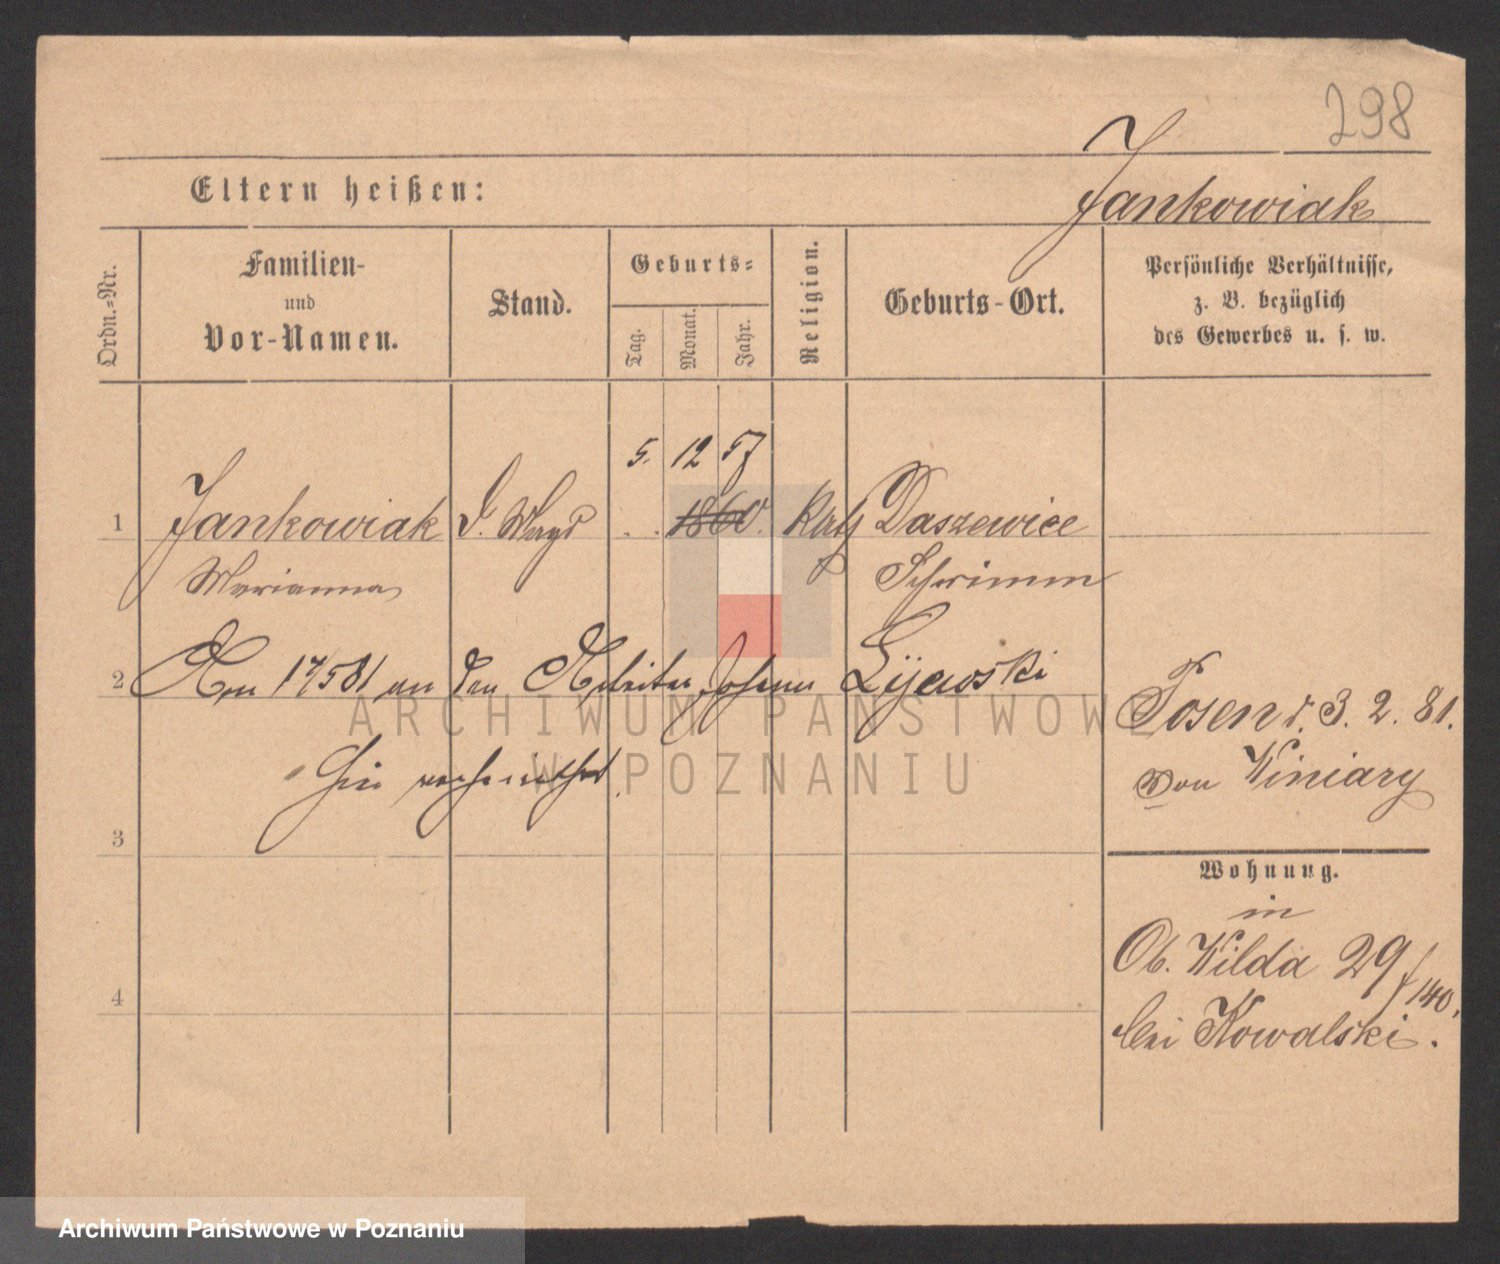 298
Jankowiak
Eltern heißen:
Ordn.-Nr.
Familien-
und
Vor-Namen.
Stand.
Geburts-
Tag.
Monat.
Jahr.
Religion.
Geburts-Ort.
Persönliche Verhältnisse,
z. B. bezüglich
des Gewerbes u. s. w.
5. 12 57
1 Jankowiak d. Magd 1860. Kath Daszewice
Marianna Schrimm
2 Am 17581 an den Arbeiter Johann Lijewski
hier verheirathet.
Posen d. 3. 2. 81.
von Winiary
3
Wohnung.
in
Ob. Wilda 29/140,
bei Kowalski.
4
ARCHIWUM PAŃSTWOWE
W POZNANIU
Archiwum Państwowe w Poznaniu